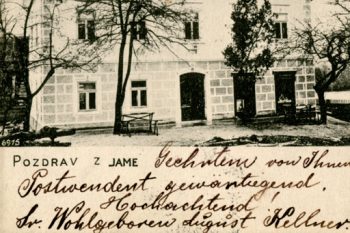 6915
POZDRAV Z JAME
Geehrtem von Ihnen
Postwendent gewärtiegend,
Hochachtend,
Sr. Wohlgeboren August Kellner.